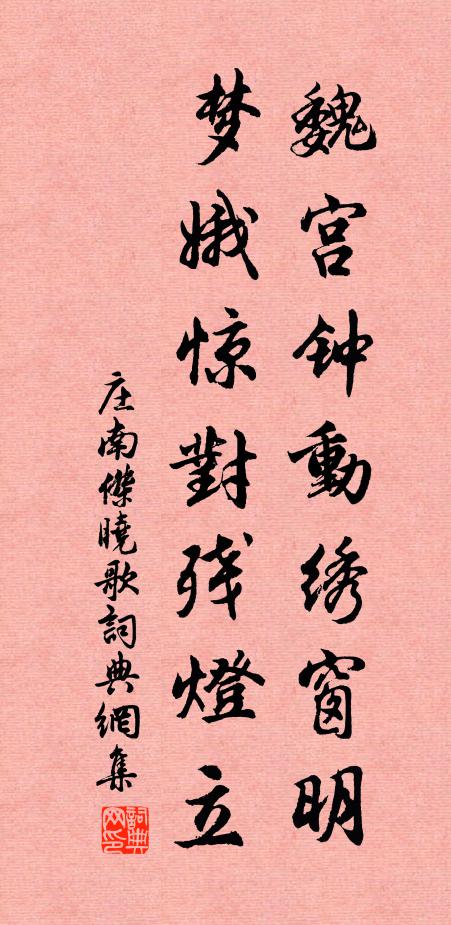 魏宫钟動绣窗明
梦娥惊對残燈立
庄南傑曉歌詞典網集
詞典网印